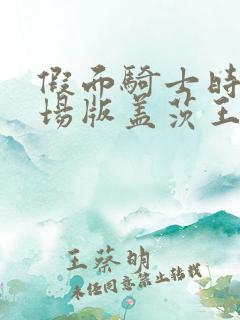 假面騎士時
場版蓋茨王
王蔡明
未经同意禁止转载